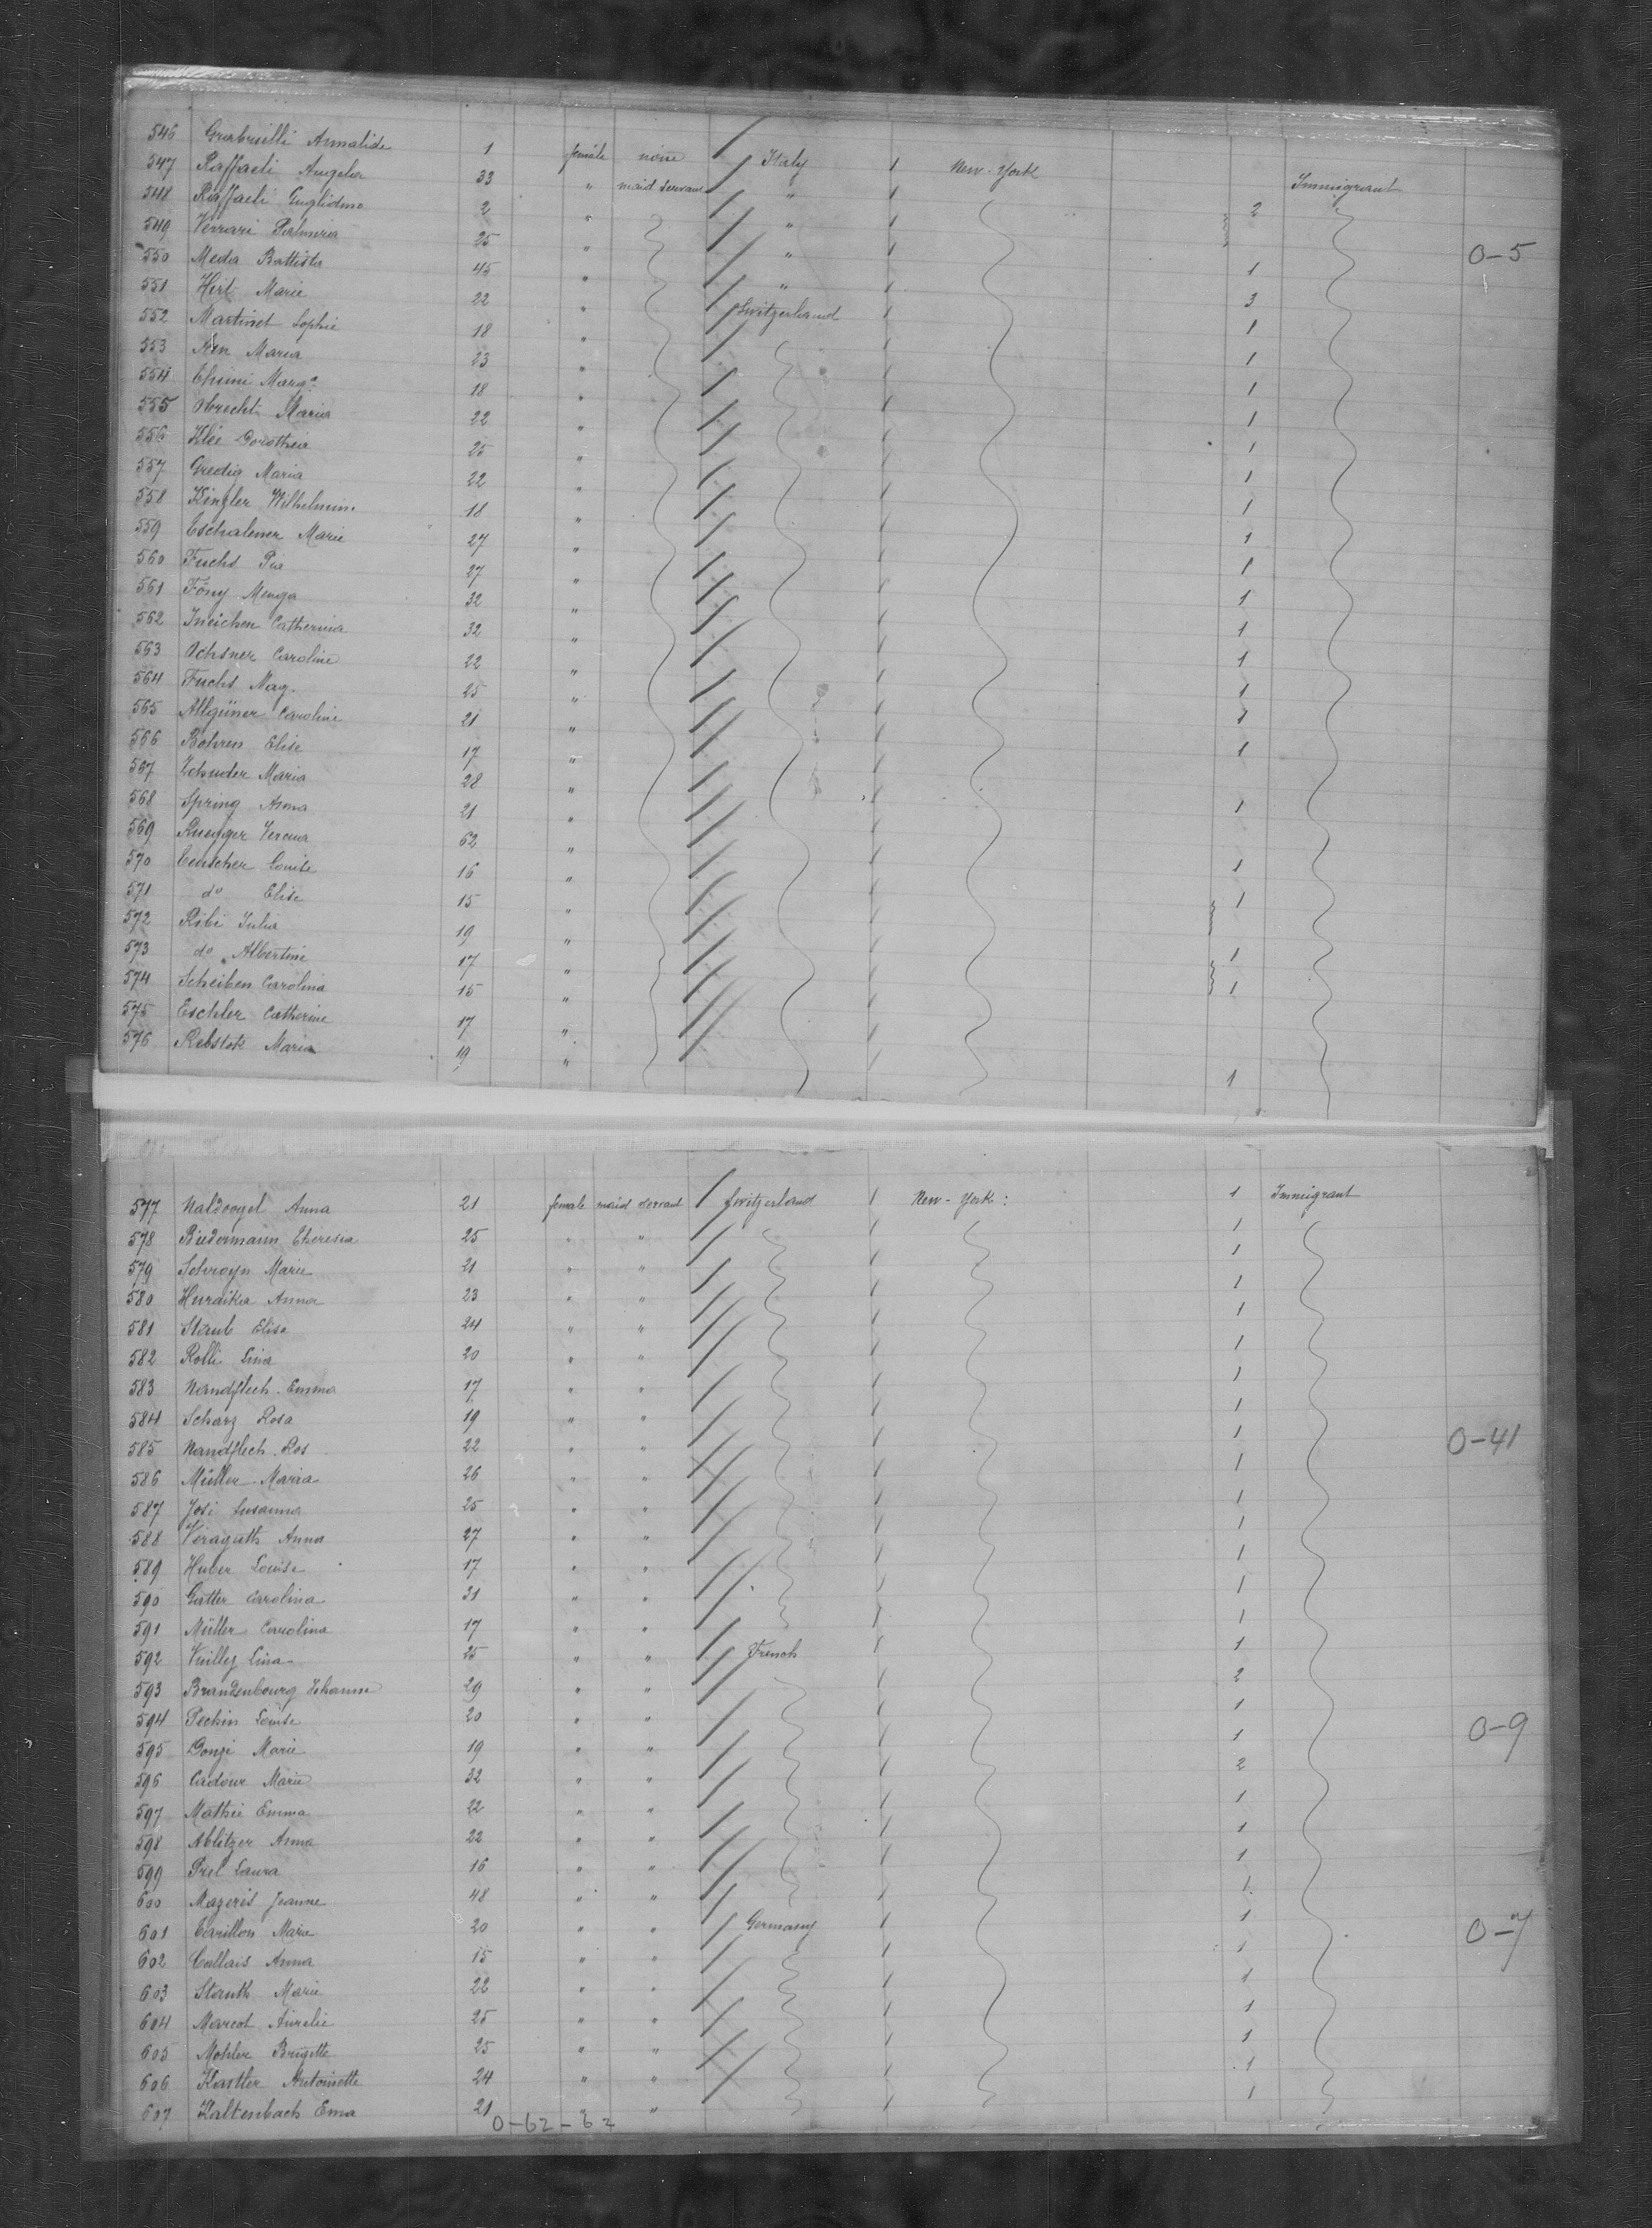 546 Grabrielli Annalide 1 female none / Italy 1 New-York Immigrant
547 Raffaeli Angela 33 " maid servant / " 1 2
548 Raffaeli Guglidmo 2 " / " 1
549 Verrari Palmira 25 " / " 1 1 0-5
550 Meda Battista 45 " / " 1 3
551 Hirt Marie 22 " / Switzerland 1 1
552 Martinet Sophie 18 " / 1 1
553 Maria 23 " / 1 1
554 Marg. 18 " / 1 1
555 Obrecht Maria 22 " / 1 1
556 Klee Dorothea 25 " / 1 1
557 Gredig Maria 22 " / 1 1
558 Kinzler Wilhelmin. 18 " / 1 1
559 Eschalener Marie 27 " / 1 1
560 Fuchs Pia 27 " / 1 1
561 Föny Menga 32 " / 1 1
562 Ineichen Catherina 32 " / 1 1
563 Ochsner Caroline 22 " / 1 1
564 Fuchs Mag. 25 " / 1 1
565 Allgüner Caroline 21 " / 1 1
566 Bohren Elise 17 " / 1
567 Zchuder Maria 28 " / 1 1
568 Spring Anna 21 " / 1
569 Ruegger Verena 62 " / 1 1
570 Teuscher Louise 16 " / 1 1
571 do Elise 15 " / 1
572 Ribi Julia 19 " / 1 1
573 do Albertine 17 " / 1 1
574 Scheiben Carolina 15 " / 1
575 Eschler Catherine 17 " / 1
576 Rebstok Maria 19 " / 1 1
577 Naldvogel Anna 21 female maid servant / Switzerland 1 New-York: 1 Immigrant
578 Biedermann Theresia 25 " " / 1 1
579 Marie 21 " " / 1 1
580 Huraika Anna 23 " " / 1 1
581 Staub Elise 24 " " / 1 1
582 Rolli Lina 20 " " / 1 1
583 Nandflech Emma 17 " " / 1 1
584 Scharz Rosa 19 " " / 1 1
585 Nandflech Ros 22 " " / 1 1 0-41
586 Müller Maria 26 " " / 1 1
587 Josi Susanna 25 " " / 1 1
588 Veraguth Anna 27 " " / 1 1
589 Huber Louise 17 " " / 1 1
590 Gatter Carolina 31 " " / 1 1
591 Müller Carolina 17 " " / 1 1
592 Vuilley Lina 25 " " / French 1 1
593 Brandenbourg Jchanne 29 " " / 1 2
594 Pechin Louise 20 " " / 1 1
595 Donzi Marie 19 " " / 1 1 0-9
596 Cadour Marie 32 " " / 1 2
597 Mathie Emma 22 " " / 1 1
598 Ablitzer Anna 22 " " / 1 1
599 Prel Laura 16 " " / 1 1
600 Mazeres Jeanne 48 " " / 1 1
601 Carillon Marie 20 " " / Germany 1 1
602 Callais Anna 15 " " / 1 1 0-7
603 Marie 22 " " / 1 1
604 Marcot Aurelie 25 " " / 1 1
605 Mohler Brigitte 25 " " / 1 1
606 Kastler Antoinette 24 " " / 1 1
607 Kaltenbach Ema 21 " " / 1 1
0-62-62